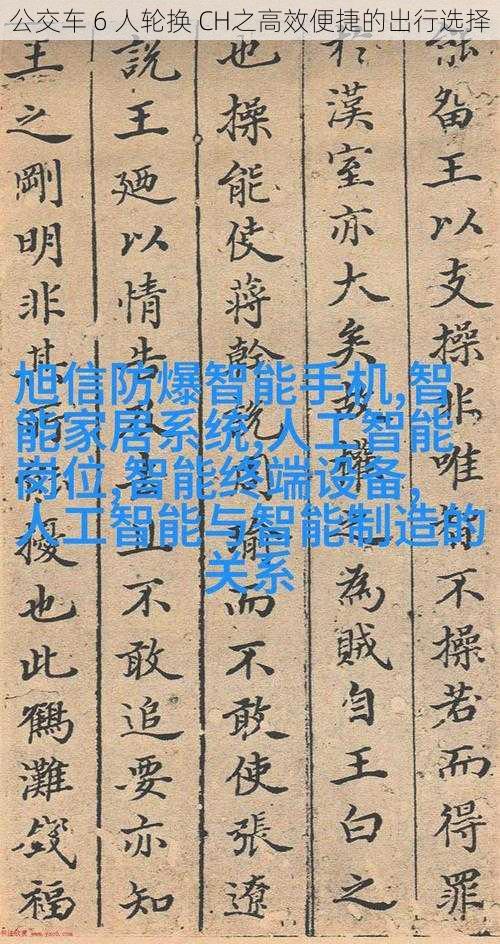 公交车 6 人轮换 CH之高效便捷的出行选择
畱王以支操非唯有不操若而得罪
於漢室亦大矣故權之為賊自王白之
也操能使蔣幹說周瑜而不敢使張遼
說王廼以情告且不敢追要亦知
王之剛明非其所擾也此鶴灘錢福
旭信防爆智能手机,智
能家居系统,人工智能
岗位,智能终端设备,
人工智能与智能制造的
关系
书法欣赏 www.yac8.com